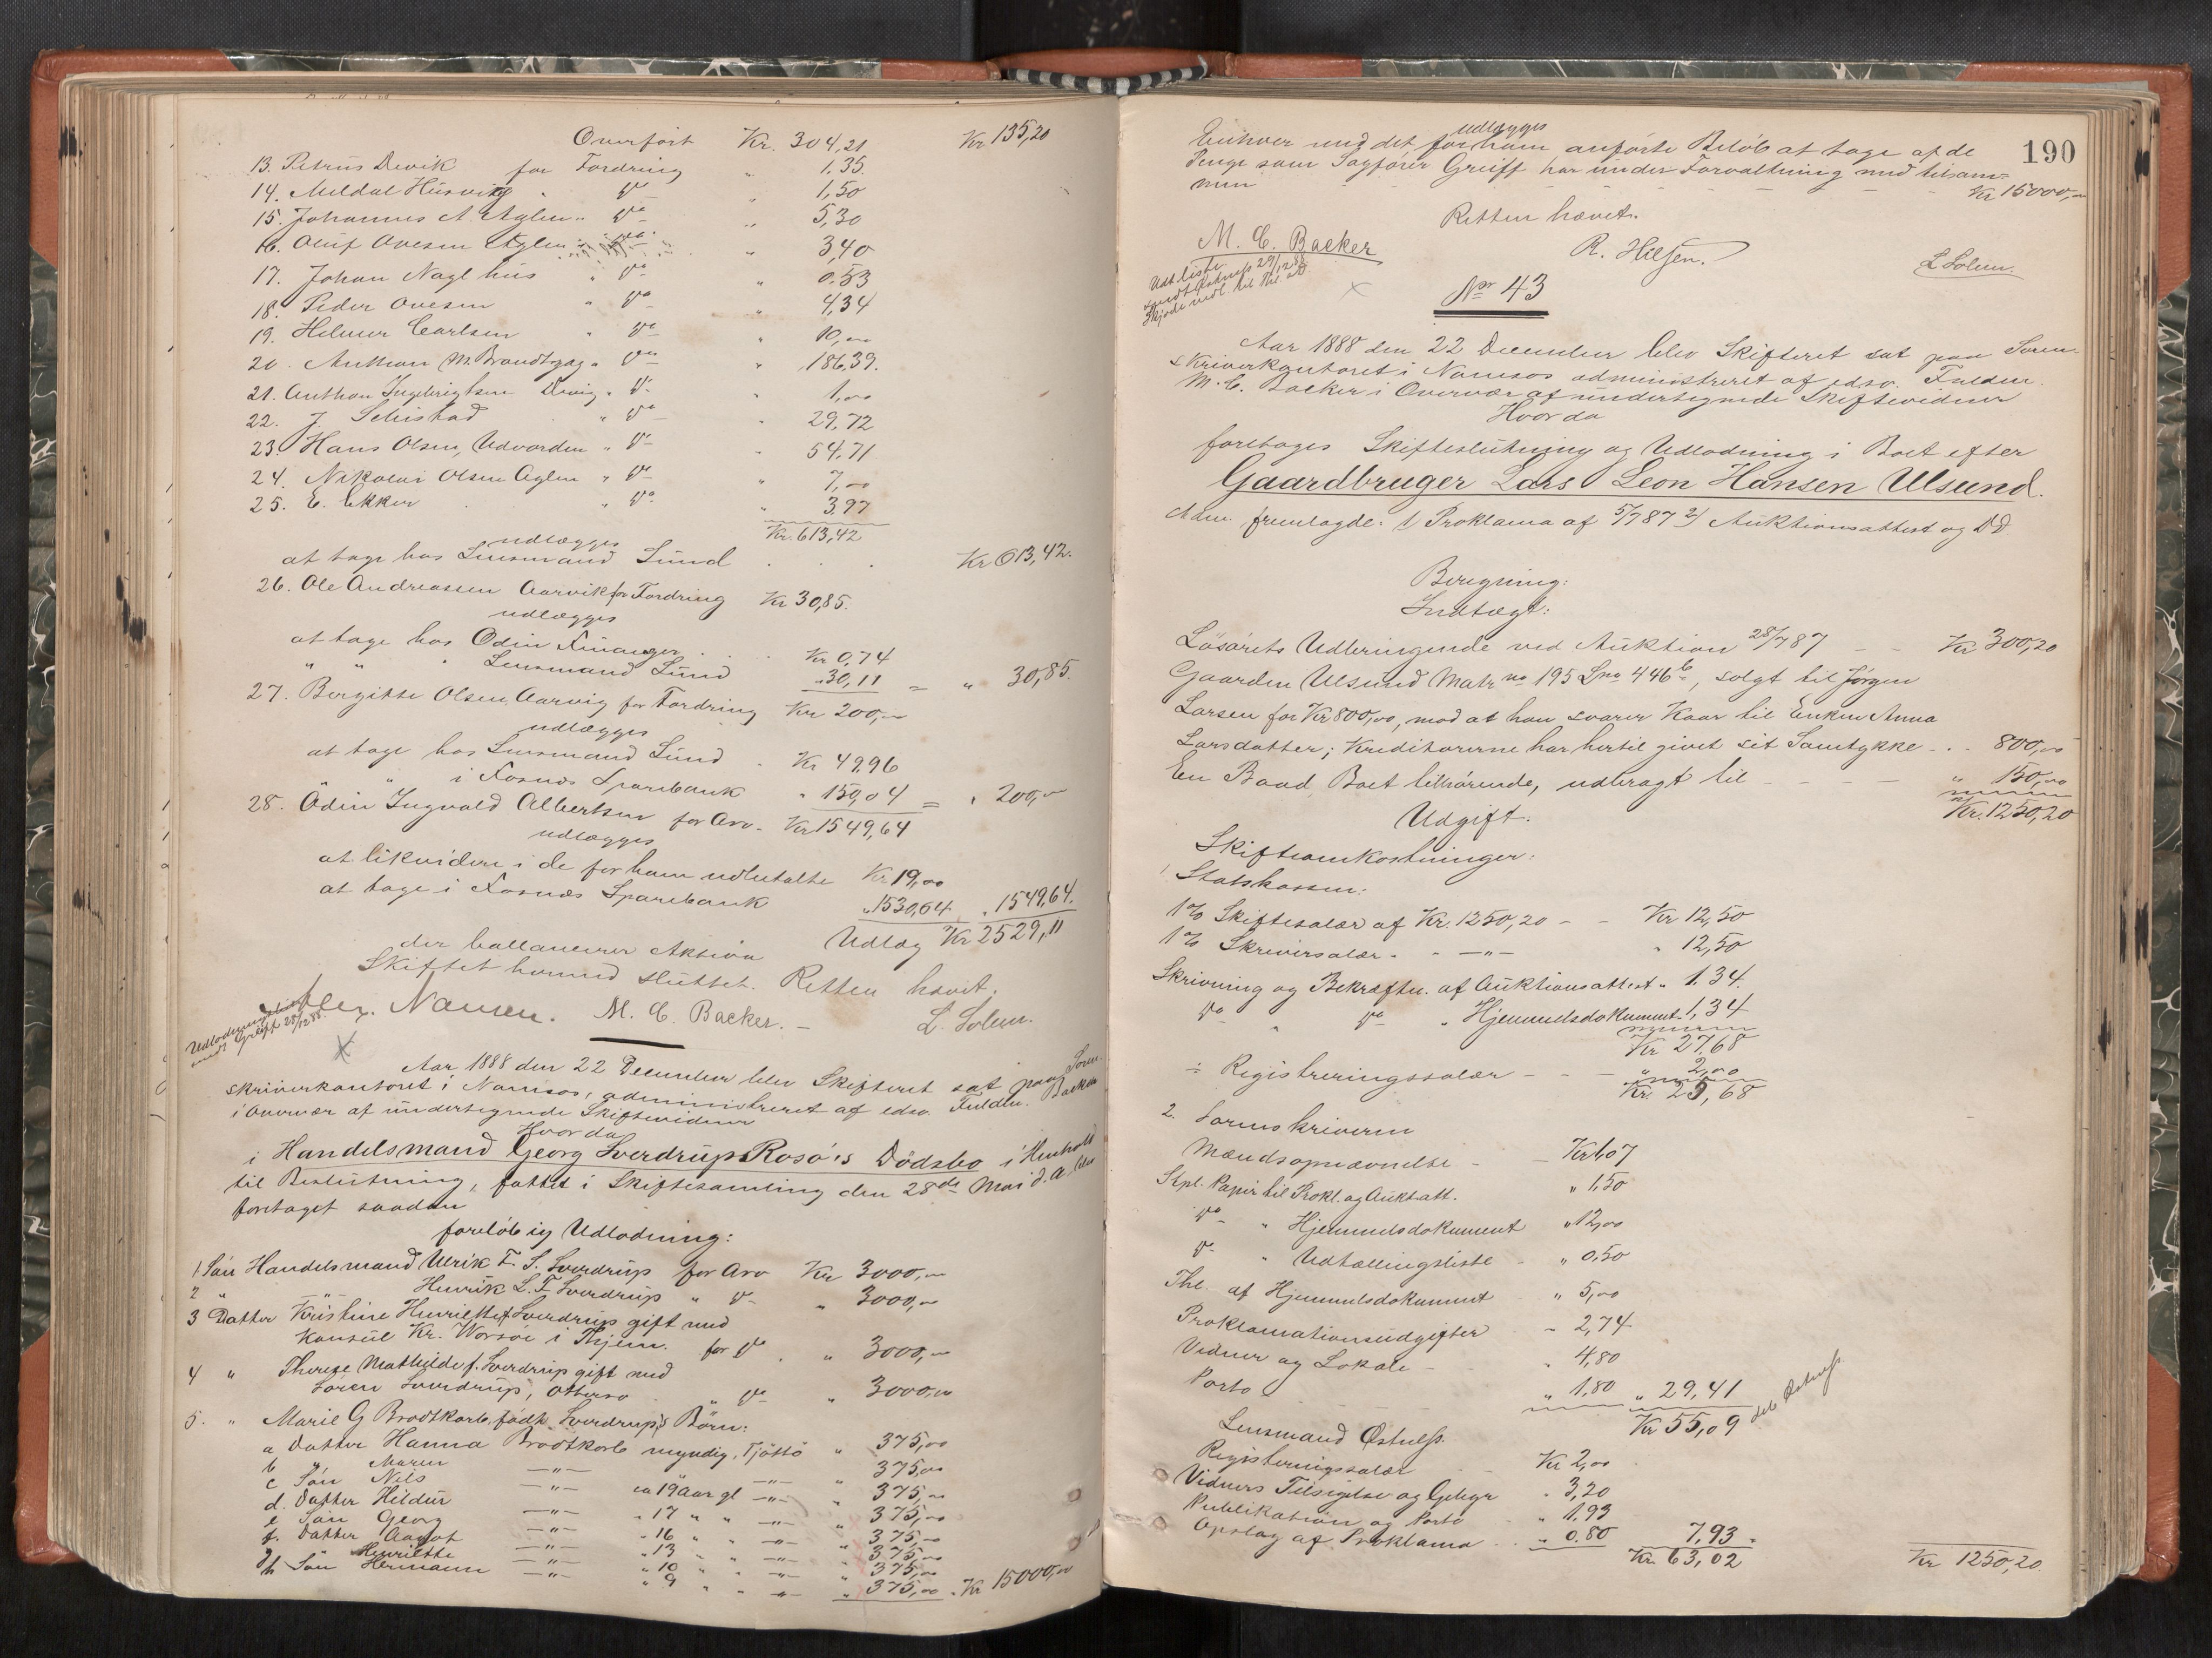 Overført Kr. 304,21 Kr 135,20
13. Petrus Devik for Fordring " 1,35
14. Meldal Husvik " Do " 1,50
15. Johannes A. Aglen " Do " 5,30
16. Oluf Ovesen Aglen " Do " 3,40
17. Johan Naglhus " Do " 0,53
18. Peder Ovesen " Do " 4,34
19. Helmer Carlsen " Do " 10,00
20. Anthon M. Brandtzæg " Do " 186,39.
21. Anthon Ingebrigtsen Devig " Do " 1,00
22. J. Selistad " Do " 29,72
23. Hans Olsen, Udvorden " Do " 54,71
24. Nikolai Olsen Aglen " Do " 7,00
25. E. Ekker " Do " 3,97
Kr. 613,42
udlægges
at tage hos Lensmand Lund . . . Kr 613,42.
26. Ole Andreassen Aarvik for Fordring Kr 30,85.
udlægges
at tage hos Odin Finanger . . Kr 0,74
" " " Lensmand Lund " 30,11 = " 30,85.
27. Bergitte Olsen Aarvig for Fordring Kr 200,00
udlægges
at tage hos Lensmand Lund " Kr 49,96
" " i Fosnæs Sparebank " 150,04 = " 200,00
28. Odin Ingvald Albertsen for Arv. Kr 1549,64
udlægges
at likvidere i de for ham udbetalte Kr 19,00
at tage i Fosnæs Sparebank " 1530,64 " 1549,64.
Udlæg Kr 2529,11
der ballancerer Aktiva
Skiftet hermed sluttet. Retten hævet.
Nansen. M. C. Backer. L. Solem.
Udlodningsliste
sendt Greiff 28/12 88.
Aar 1888 den 22 December blev Skifteret sat paa Soren-
skriverkontoret i Namsos, administreret af edsv. Fuldm. Backer
i Overvær af undertegnede Skiftevidner
Hvorda
i Handelsmand Georg Sverdrup Rosø's Dødsbo i Henhold
til Beslutning, fattet i Skiftesamling den 28de Mai d. A. blev
foretaget saadan
foreløbig Udlodning:
1 Søn Handelsmand Ulrik F. S. Sverdrup for Arv Kr 3000,00
2 " " Henrik L. F. Sverdrup " Do " 3000,00
3 Datter Kristine Henriette f. Sverdrup gift med
Konsul Kr. Worsøe i Thjem. for Do " 3000,00
4 " Therese Mathilde f. Sverdrup gift med
Søren Sverdrup, Otterøo " Do " 3000,00
5. " Marie G Brodtkorb, født Sverdrup's Børn:
a Datter Hanna Brodtkorb myndig, Tjøttø " 375,00
b " Maren " " " 375,00
c Søn Nils " ca 19 Aar gl " " 375,00
d. Datter Hildur " " 17 " " " " 375,00
e Søn Georg " " 16 " " " " 375,00
f. Datter Aagot " " 13 " " " " 375,00
g " Henriette " " 10 " " " " 375,00
h Søn Hermann " " 9 " " " " 375,00 " Kr 15000,00
190
udlægges
Enhver med det for ham anførte Beløb at tage af de
Penge som Sagfører Greiff har under Forvaltning med tilsam-
men - - - - - Kr 15000,00
Retten hævet.
M. C. Backer R. Hilsen. L Solem.
Udl.liste
sendt Østnes 29/12 88
Skjøde medl. til Thl. do
No 43
Aar 1888 den 22 December blev Skifteret sat paa Soren-
skriverkontoret i Namsos administreret af edsv. Fuldm.
M. C. Backer i Overvær af undertegnede Skiftevidner
Hvorda
foretages Skifteslutning og Udlodning i Boet efter
Gaardbruger Lars Leon Hansen Ulsund.
Adm. fremlagde: 1/ Proklama af 5/7 87 2/ Auktionsattest og DD.
Beregning:
Indtægt:
Løsørets Udbringende ved Auktion 28/7 87 - - Kr 300,20
Gaarden Ulsund Matr no 195 Lno 446b, solgt til Jørgen
Larsen for Kr 800,00, mod at han svarer Kaar til Enken Anna
Larsdatter; Kreditorerne har hertil givet sit Samtykke - - 800,00
En Baad, Boet tilhørende, udbragt til - - - " 150,00
Kr. 1250,20
Udgift:
Skifteomkostninger:
1 Statskassen:
1% Skiftesalær af Kr. 1250,20 - - Kr 12,50
1% Skriversalær " " " 12,50
Skrivning og Bekræftn. af Auktionsattest " 1,34.
Do " Do " Hjemmelsdokument " 1,34
Kr 27,68
÷ Registreringssalær - - - " 2,00
Kr. 25,68
2. Sorenskriveren
Mændsopnævnelse - - Kr 1,07
Stpl. Papir til Prokl. og Aukt.att. " 1,50
Do " Hjemmelsdokument " 12,00
Do " Udtællingsliste " 0,50
Thl. af Hjemmelsdokument " 5,00
Proklamationsudgifter " 2,74
Vidner og Lokale - " 4,80
Porto " 1,80 " 29,41
Kr 55,09
Lensmand Østnes.
Registreringssalær Kr 2,00
Vidners Tilsigelse og Gebyr " 3,20
Publikation og Porto " 1,93
Opslag af Proklama " 0,80 7,93
Kr. 63,02 Kr 1250,20.